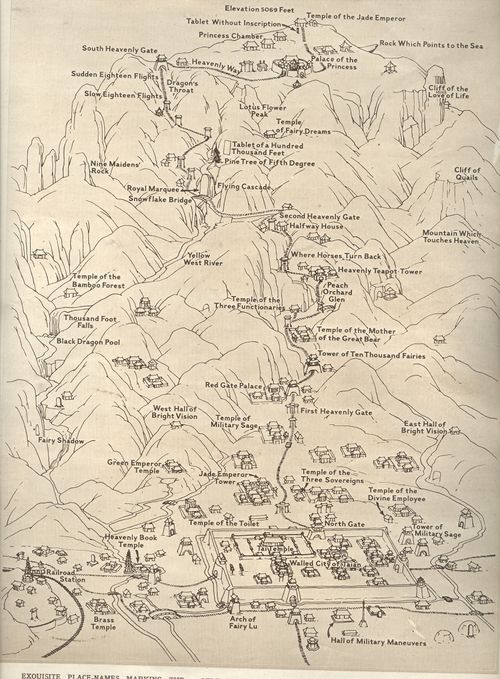 Elevation 5069 Feet
Temple of the Jade Emperor
Tablet Without Inscription
Princess Chamber
Rock Which Points to the Sea
South Heavenly Gate
Heavenly Way
Palace of the
Princess
Sudden Eighteen Flights
Dragon's
Throat
Cliff of the
Love of Life
Slow Eighteen Flights
Lotus Flower
Peak
Temple
of Fairy Dreams
Tablet of a Hundred
Thousand Feet
Nine Maidens'
Rock
Pine Tree of Fifth Degree
Cliff of
Quails
Royal Marquee
Flying Cascade
Snowflake Bridge
Second Heavenly Gate
Halfway House
Mountain Which
Touches Heaven
Yellow
West River
Where Horses Turn Back
Heavenly Teapot Tower
Temple of the
Bamboo Forest
Peach
Orchard
Glen
Temple of the
Three Functionaries
Thousand Foot
Falls
Temple of the Mother
of the Great Bear
Black Dragon Pool
Tower of Ten Thousand Fairies
Red Gate Palace
First Heavenly Gate
West Hall of
Bright Vision
Temple of
Military Sage
East Hall of
Bright Vision
Fairy Shadow
Green Emperor
Temple
Jade Emperor
Tower
Temple of the
Three Sovereigns
Temple of the
Divine Employee
Temple of the Toilet
North Gate
Tower of
Military Sage
Heavenly Book
Temple
Tai Temple
Walled City of Taian
Railroad
Station
Brass
Temple
Arch of
Fairy Lu
Hall of Military Maneuvers
EXQUISITE PLACE-NAMES MARKING THE